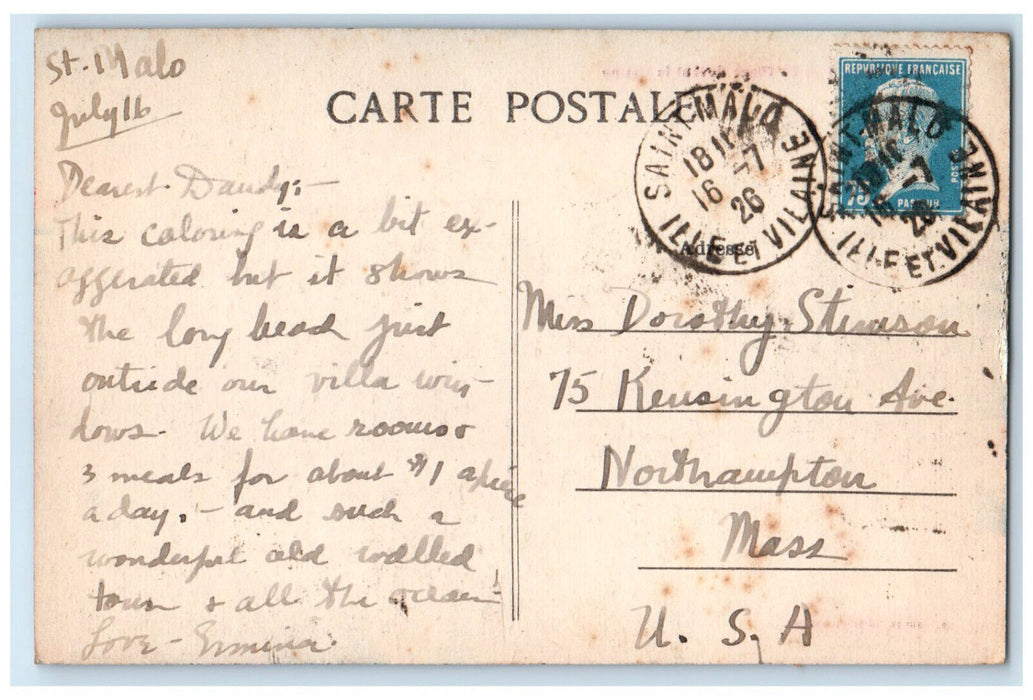 St. Malo
July 16
CARTE POSTALE
REPVBLIQVE FRANÇAISE
75
PASTEUR
SAINT-MALO
18
16 -7
26
ILLE ET VILAINE
SAINT-MALO
16 -7
26
ILLE ET VILAINE
Adresse
Dearest Dandy:-
This coloring is a bit ex-
aggerated but it shows
the long beach just
outside our villa win-
dows. We have rooms &
3 meals for about $1 apiece
a day. - and such a
wonderful old walled
town & all the ocean!
Love - Ermina.
Miss Dorothy Stimson
75 Kensington Ave.
Northampton
Mass
U. S. A